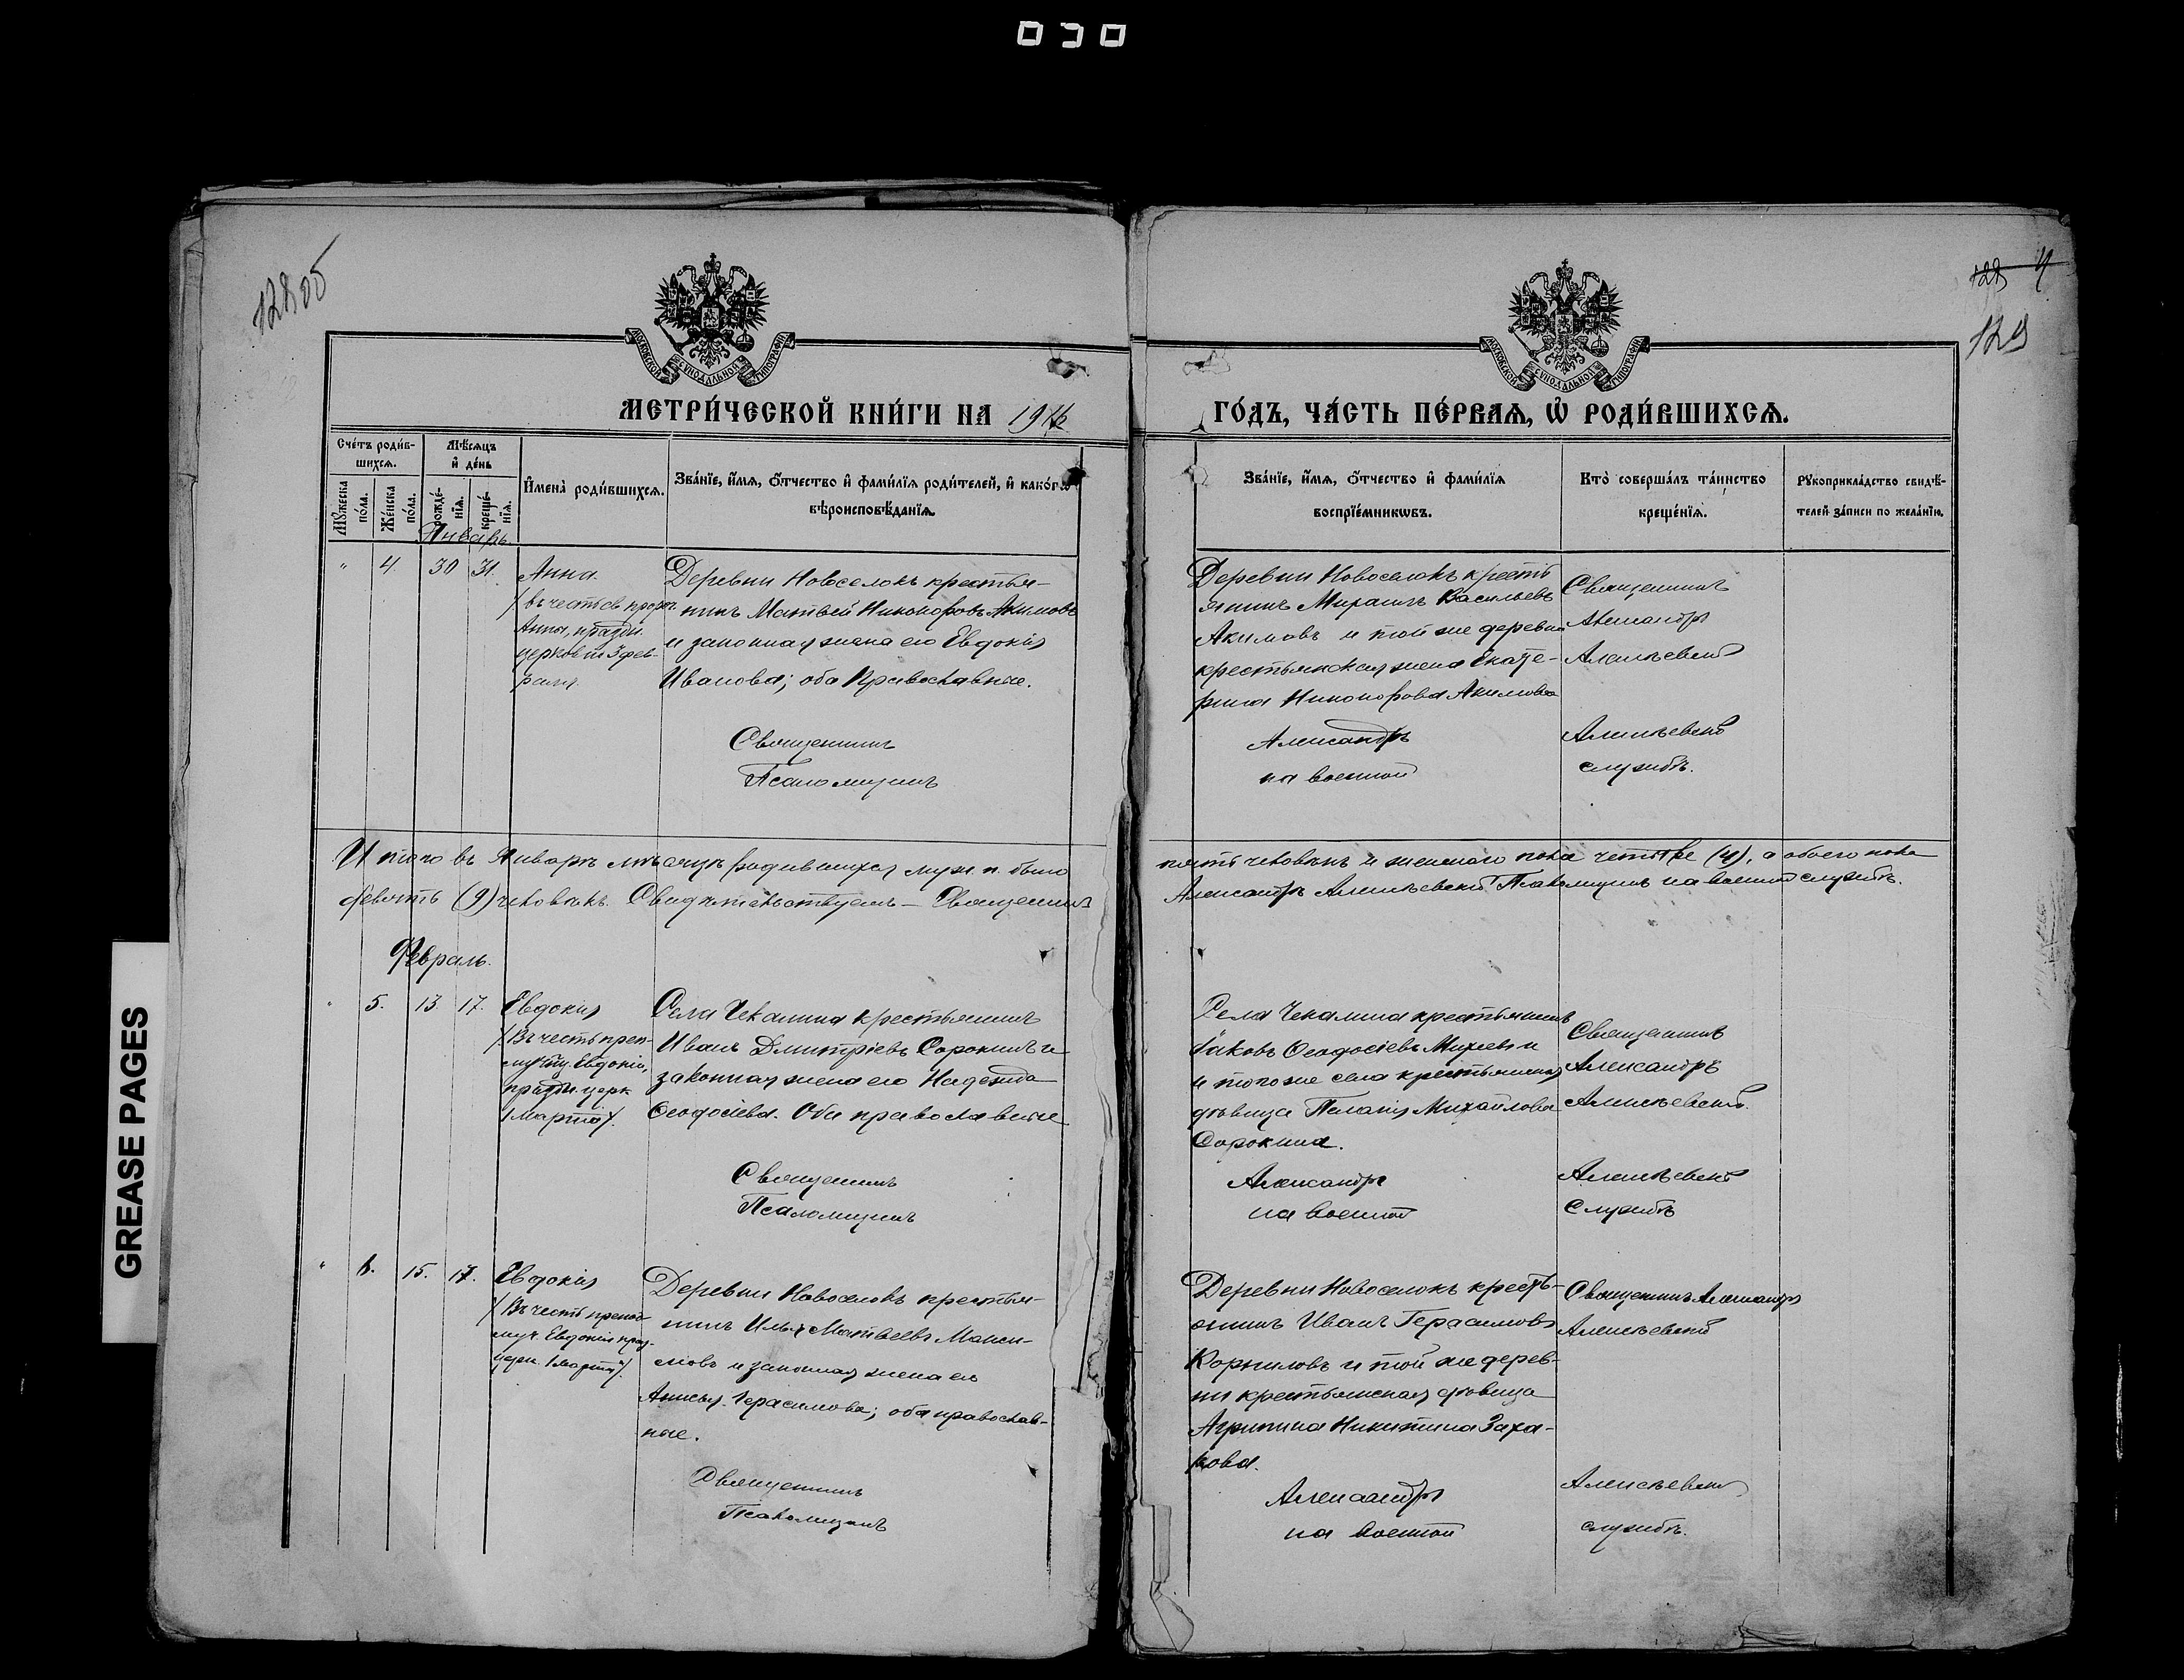 030
128 об
129 4
129
МОСКОВСКОЙ СѴНОДАЛЬНОЙ ТИПОГРАФІИ
МОСКОВСКОЙ СѴНОДАЛЬНОЙ ТИПОГРАФІИ
МЕТРИ́ЧЕСКОЙ КНИ́ГИ НА 1916
ГО́ДЪ, ЧА́СТЬ ПЕ́РВАѦ, Ѡ РОДИ́ВШИХСѦ.
Сче́тъ роди́в-
шихсѧ.
Мѣ́сѧцъ
и҆ де́нь
Мꙋ́жеска
по́ла.
Же́нска
по́ла.
рожде́-
нїѧ.
креще́-
нїѧ.
И҆мена̀ роди́вшихсѧ.
Зва́нїе, и҆́мѧ, ѻ҆́тчество и҆ фами́лїѧ роди́телей, и҆ како́гѡ
вѣроисповѣ́данїѧ.
Зва́нїе, и҆́мѧ, ѻ҆́тчество и҆ фами́лїѧ
воспрїе́мникѡвъ.
Кто̀ соверша́лъ та́инство
креще́нїѧ.
Рꙋкоприкла́дство свидѣ́-
телей за́писи по жела́нїю.
Январь.
" 4. 30 31.
Анна.
/въ честь св. прор.
Анны, праздн.
церков. 3 фев-
раля.
Деревни Новоселокъ крестья-
нинъ Матвей Никоноровъ Акимовъ
и законная жена его Евдокія
Иванова; оба Православные.
Священникъ
Псаломщикъ
Деревни Новоселокъ кресть
янинъ Михаилъ Васильевъ
Акимовъ и той же деревни
крестьянская жена Екате-
рина Никонорова Акимова
Александръ
на военной
Священникъ
Александръ
Алексѣевскій
Алексѣевскій
службѣ.
Итого въ Январѣ мѣсяцѣ родившихся муж. п. было
девять (9) человѣкъ. Свидѣтельствуемъ — Священникъ
пять человѣкъ и женскаго пола четыре (4), а обоего пола
Александръ Алексѣевскій Псаломщикъ на военной службѣ.
Февраль.
" 5. 13. 17.
Евдокія
/Въ честь преп-
муч. Евдокіи,
праздн. церк
1 Марта/.
Села Чекалина крестьянинъ
Иванъ Дмитріевъ Сорокинъ и
законная жена его Надежда
Ѳеодосіева. Оба православные
Священникъ
Псаломщикъ
Села Чекалина крестьянинъ
Іаковъ Ѳеодосіевъ Михеевъ и
и того же села крестьянская
дѣвица Пелагія Михайлова
Сорокина.
Александръ
на военной
Священникъ
Александръ
Алексѣевскій.
Алексѣевскій
Службѣ
" 6. 15. 17.
Евдокія
/Въ честь препод
муч. Евдокіи праз.
церк. 1 марта/.
Деревни Новоселокъ крестья-
нинъ Илья Матвеевъ Макси-
мовъ и законная жена его
Анисья Герасимова; оба православ-
ные.
Священникъ
Псаломщикъ
Деревни Новоселокъ кресть-
янинъ Иванъ Герасимовъ
Корниловъ и той же дерев-
ни крестьянская дѣвица
Агрипина Никитина Заха-
рова.
Александръ
на военной
Священникъ Александръ
Алексѣевскій
Алексѣевскій
службѣ.
GREASE PAGES